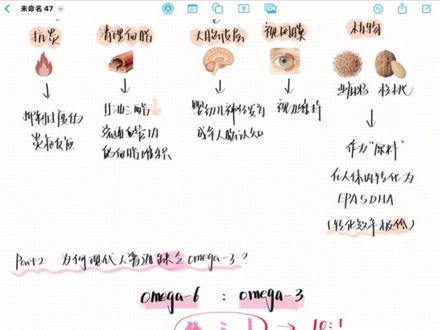 未命名 47
抗炎
清理血脂
大脑发育
视网膜
植物
抑制过度的
炎症反应
甘油三酯
疏通血管内
的血脂堆积
婴幼儿神经发育
成年人脑认知
视力维持
亚麻籽
核桃
作为“原料”
在人体内转化为
EPA&DHA
(转化效率极低)
Part 2 为何现代人普遍缺乏 omega-3?
omega-6 : omega-3
10:1